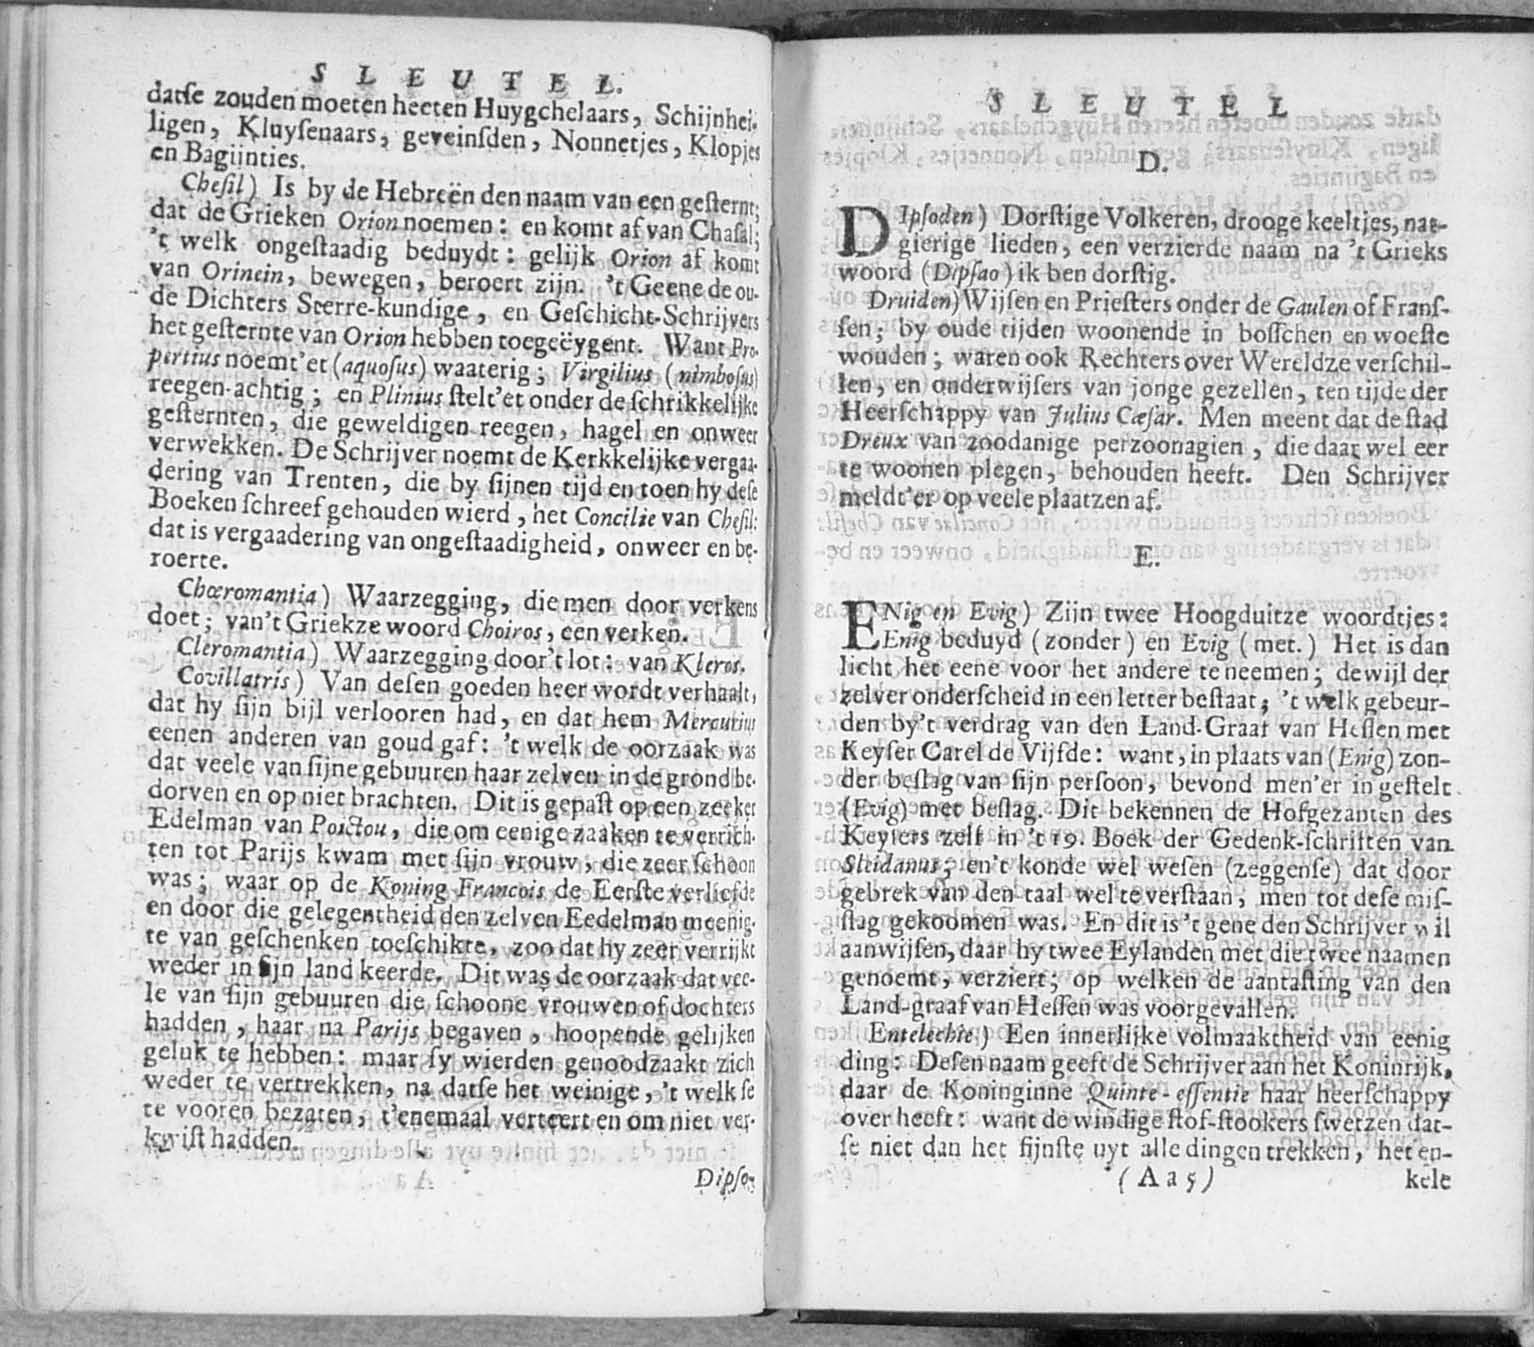 SLEUTEL.
datſe zouden moeten heeten Huygchelaars, Schijnhei-
ligen, Kluyſenaars, geveinſden, Nonnetjes, Klopjes
en Bagijnties.
Cheſil) Is by de Hebreën den naam van een geſternt;
dat de Grieken Orion noemen: en komt af van Chaſal;
't welk ongeſtaadig beduydt: gelijk Orion af komt
van Orinein, bewegen, beroert zijn. 't Geene de ou-
de Dichters Sterre-kundige, en Geſchicht-Schrijvers
het geſternte van Orion hebben toegeëygent. Want Pro-
pertius noemt'et (aquoſus) waaterig; Virgilius (nimboſus)
reegen-achtig; en Plinius ſtelt'et onder de ſchrikkelijke
geſternten, die geweldigen reegen, hagel en onweer
verwekken. De Schrijver noemt de Kerkkelijke vergaa-
dering van Trenten, die by ſijnen tijd en toen hy deſe
Boeken ſchreef gehouden wierd, het Concilie van Cheſil:
dat is vergaadering van ongeſtaadigheid, onweer en be-
roerte.
Chœromantia) Waarzegging, die men door verkens
doet; van't Griekze woord Choiros, een verken.
Cleromantia) Waarzegging door't lot: van Kleros.
Covillatris) Van deſen goeden heer wordt verhaalt,
dat hy ſijn bijl verlooren had, en dat hem Mercurius
eenen anderen van goud gaf: 't welk de oorzaak was
dat veele van ſijne gebuuren haar zelven in de grond be-
dorven en op niet brachten. Dit is gepaſt op een zeeker
Edelman van Poictou, die om eenige zaaken te verrich-
ten tot Parijs kwam met ſijn vrouw, die zeer ſchoon
was; waar op de Koning Francois de Eerſte verliefde
en door die gelegentheid den zelven Eedelman meenig-
te van geſchenken toeſchikte, zoo dat hy zeer verrijkt
weder in ſijn land keerde. Dit was de oorzaak dat vee-
le van ſijn gebuuren die ſchoone vrouwen of dochters
hadden, haar na Parijs begaven, hoopende gelijken
geluk te hebben: maar ſy wierden genoodzaakt zich
weder te vertrekken, na datſe het weinige, 't welk ſe
te vooren bezaten, t'enemaal verteert en om niet ver-
kwiſt hadden.
Dipſo-
SLEUTEL
D.
DIpſoden) Dorſtige Volkeren, drooge keeltjes, nat-
gierige lieden, een verzierde naam na 't Grieks
woord (Dipſao) ik ben dorſtig.
Druiden) Wijſen en Prieſters onder de Gaulen of Franſ-
ſen; by oude tijden woonende in boſſchen en woeſte
wouden; waren ook Rechters over Wereldze verſchil-
len, en onderwijſers van jonge gezellen, ten tijde der
Heerſchappy van Julius Cæſar. Men meent dat de ſtad
Dreux van zoodanige perzoonagien, die daar wel eer
te woonen plegen, behouden heeft. Den Schrijver
meldt'er op veele plaatzen af.
E.
ENig en Evig) Zijn twee Hoogduitze woordtjes:
Enig beduyd (zonder) en Evig (met.) Het is dan
licht het eene voor het andere te neemen; dewijl der
zelver onderſcheid in een letter beſtaat; 't welk gebeur-
den by't verdrag van den Land-Graaf van Heſſen met
Keyſer Carel de Vijfde: want, in plaats van (Enig) zon-
der beſlag van ſijn perſoon, bevond men'er in geſtelt
(Evig) met beſlag. Dit bekennen de Hofgezanten des
Keyſers zelf in 't 19. Boek der Gedenk-ſchriften van
Sleidanus; en't konde wel weſen (zeggenſe) dat door
gebrek van den taal wel te verſtaan, men tot deſe miſ-
ſlag gekoomen was. En dit is 't gene den Schrijver wil
aanwijſen, daar hy twee Eylanden met die twee naamen
genoemt, verziert; op welken de aantaſting van den
Land-graaf van Heſſen was voorgevallen.
Entelechie) Een innerlijke volmaaktheid van eenig
ding: Deſen naam geeft de Schrijver aan het Koninrijk,
daar de Koninginne Quinte-eſſentie haar heerſchappy
over heeft: want de windige ſtof-ſtookers ſwetzen dat-
ſe niet dan het fijnſte uyt alle dingen trekken, het en-
(Aa5) kele